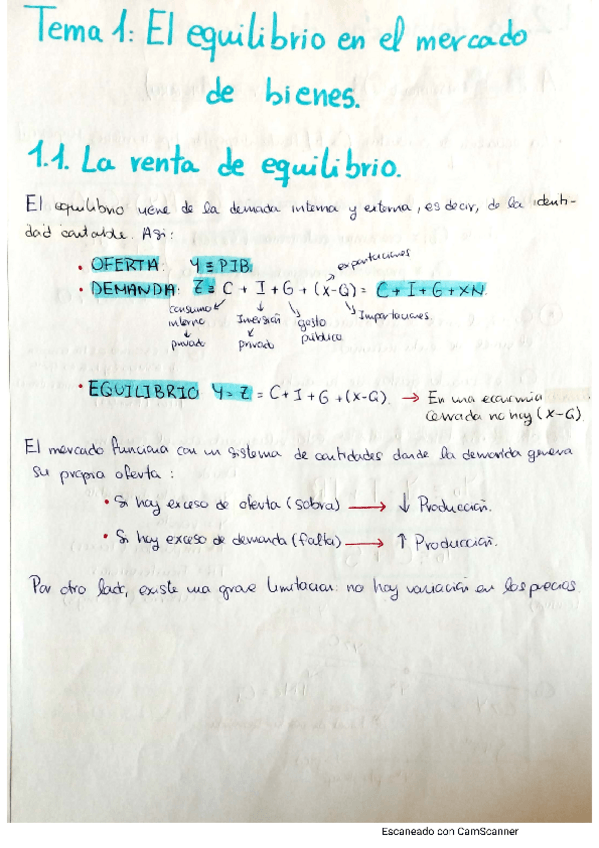 Tema 1: El equilibrio en el mercado
de bienes.
1.1. La renta de equilibrio.
El equilibrio viene de la demada interna y externa, es decir, de la identi-
dad contable. Asi:
• OFERTA: Y ≡ PIB
exportaciones
• DEMANDA: Z ≡ C + I + G + (X-Q) = C + I + G + XN
consumo interno Inversión gasto público Importaciones
privado privado
• EQUILIBRIO Y = Z = C + I + G + (X-Q). → En una economía
cerrada no hay (X-Q)
El mercado funciona con un sistema de cantidades donde la demanda genera
su propia oferta:
• Si hay exceso de oferta (sobra) → ↓ Producción.
• Si hay exceso de demanda (falta) → ↑ Producción.
Por otro lado, existe una grave limitación: no hay variación en los precios
Escaneado con CamScanner